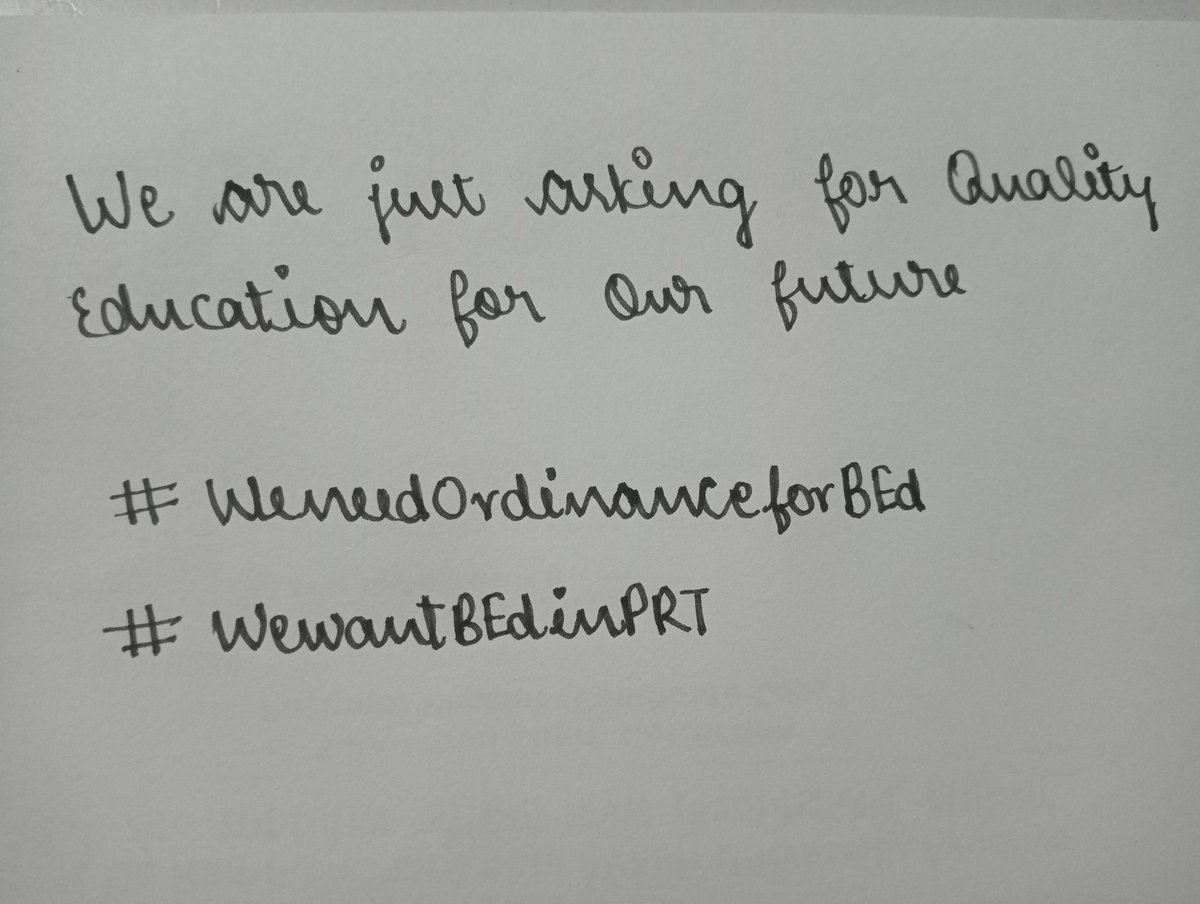 We are just asking for Quality
Education for Our future
# WeneedOrdinanceforBEd
# WewantBEdinPRT